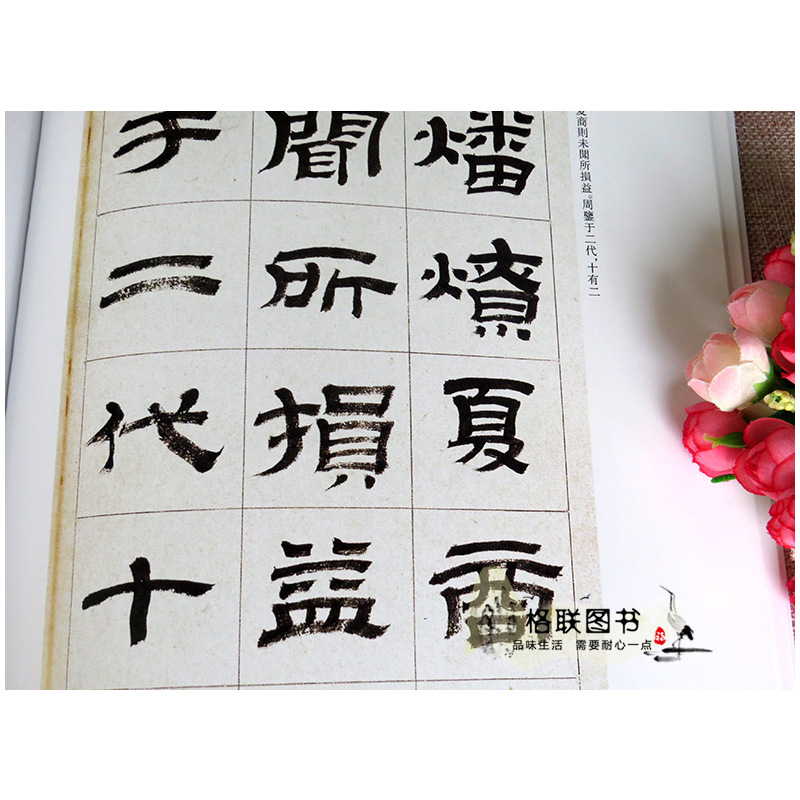 夏商則未聞所損益。周鑒于二代，十有二
燔燎夏商
聞所損益
于二代十
格联图书
品味生活 需要耐心一点